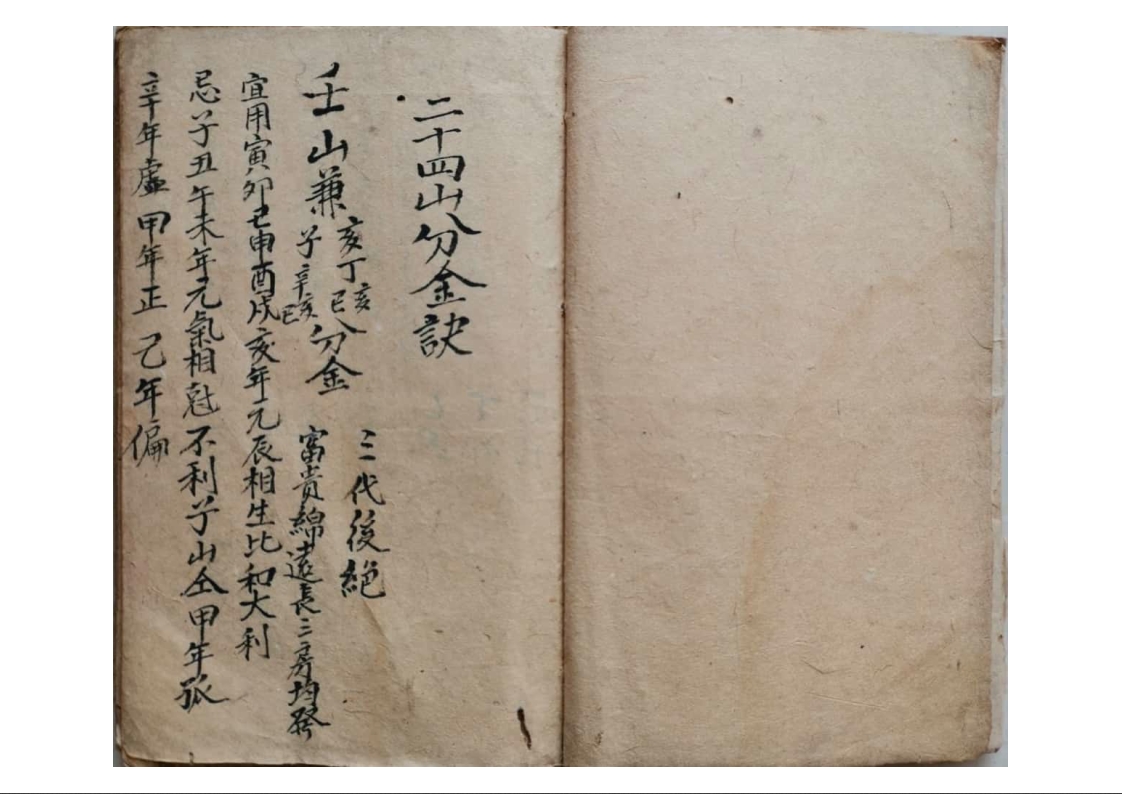 二十四山分金訣
壬山兼
亥丁亥巳
子辛亥巳
分金
三代後絶
富貴綿遠長三房均發
宜用寅卯巳申酉戌亥年元辰相生比和大利
忌子丑午未年元氣相尅不利子山仝甲年孤
辛年虛甲年正己年偏